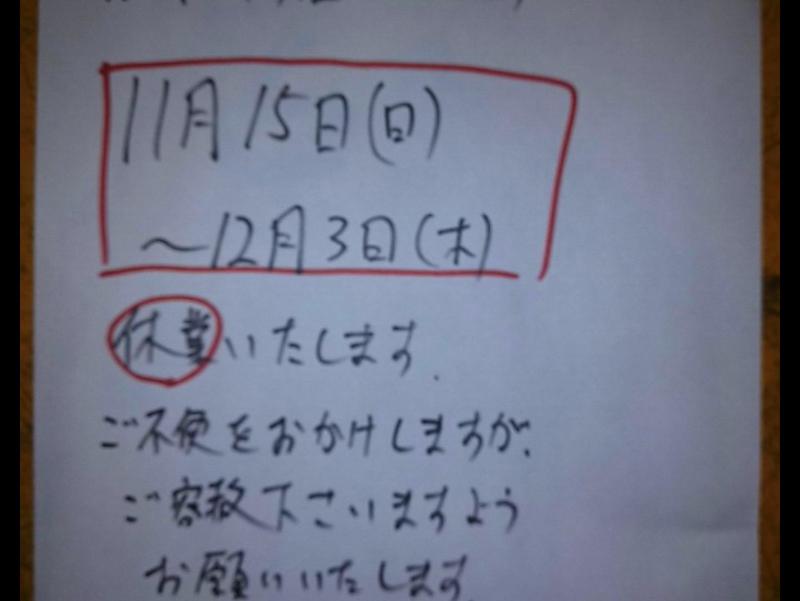 11月15日(日)
～12月3日(木)
休業いたします.
ご不便をおかけしますが、
ご容赦下さいますよう
お願いいたします